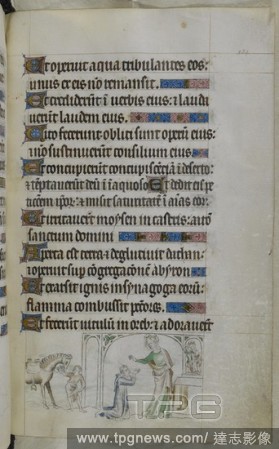 Et operuit aqua tribulantes eos:
unus ex eis nō remansit.
Et crediderūt ī verbis eius: ⁊ laudaverūt laudem eius.
Cito fecerunt obliti sunt operū eius:
⁊ nō sustinuerūt consilium eius
Et concupierūt concupiscēciā ī deserto:
⁊ tēptaverūt deū ī īaquoso Et dedit eis peticiem ipor: ⁊ misit saturitatē ī aīas eor:
Et irritaverūt moysen in castris: aarō
sanctum domini
Aperta est terra ⁊ deglutivit dathan:
⁊ operuit sup cōgregacionē abyron
Et exarsit ignis in synagoga eorū:
flamma combussit pctores.
Et fecerūt vitulū in oreb: ⁊ adoraverūt
TPG
www.tpgnews.com / 達志影像